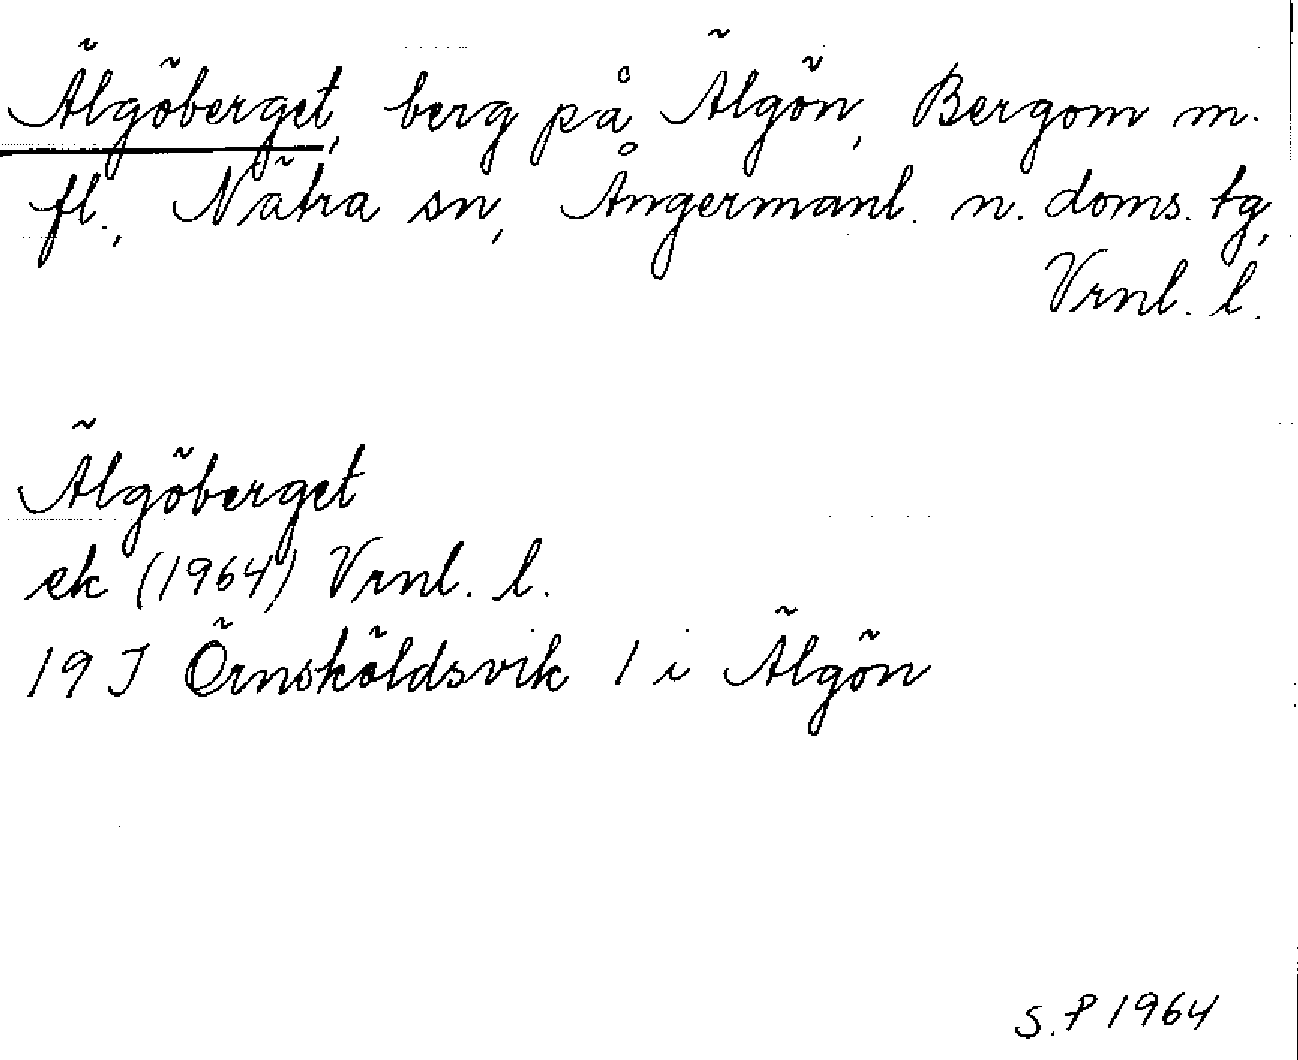 Älgöberget, berg på Älgön, Bergom m.
fl., Nätra sn, Ångermanl. n. doms. tg,
Vrnl. l.
Älgöberget
ek (1964) Vrnl. l.
19 J Örnsköldsvik 1 i Älgön
S. P 1964